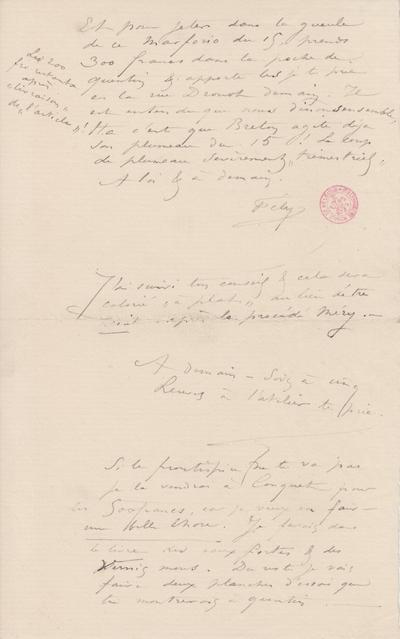 Et pour jeter dans la gueule
de ce Marforio du 15, prends
300 francs dans la poche de
quentin & apporte les je te prie
en la rue Drouot demain. Il
est entendu que nous dînons ensemble,
Il a c'est que Breton agite déjà
son plumeau du 15 !! Le coup
de plumeau
A toi & à demain.
Fély
Les 200
fr restants
après
livraison
de "l'article" !
J'ai suivi ton conseil & cela sera
colorié "à plat", au lieu d'être
après le procédé Méry. —
A demain — Sois à cinq
heures à l'atelier te prie.
Si le frontispice ne te va pas
je le vendrai à Conquet pour
les 500 francs, car je veux en faire
une belle chose. Je ferais dans
le livre des eaux fortes & des
vernis mous. Du reste je vais
faire deux planches d'essai que
tu montreras à quentin